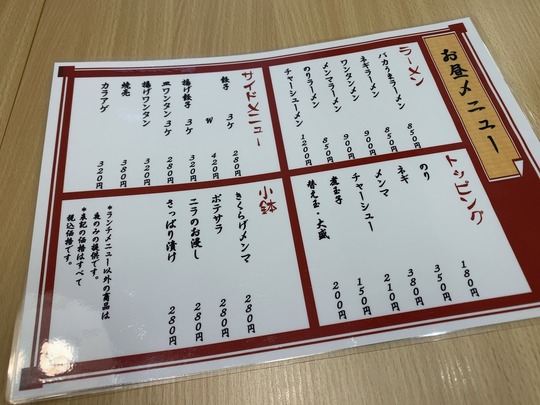 お昼メニュー
ラーメン
バカうまラーメン 850円
ネギラーメン 850円
ワンタンメン 900円
メンマラーメン 900円
のりラーメン 850円
チャーシューメン 1200円
トッピング
のり 180円
ネギ 350円
メンマ 380円
チャーシュー 210円
煮玉子 150円
替え玉・大盛 200円
サイドメニュー
餃子 3ケ 280円
W 420円
揚げ餃子 3ケ 320円
皿ワンタン 3ケ 280円
揚げワンタン 320円
焼売 380円
カラアゲ 320円
小鉢
きくらげメンマ 280円
ポテサラ 280円
ニラのお浸し 280円
さっぱり漬け 280円
*ランチメニュー以外の商品は
夜のみの提供です。
*表記の価格はすべて
税込価格です。